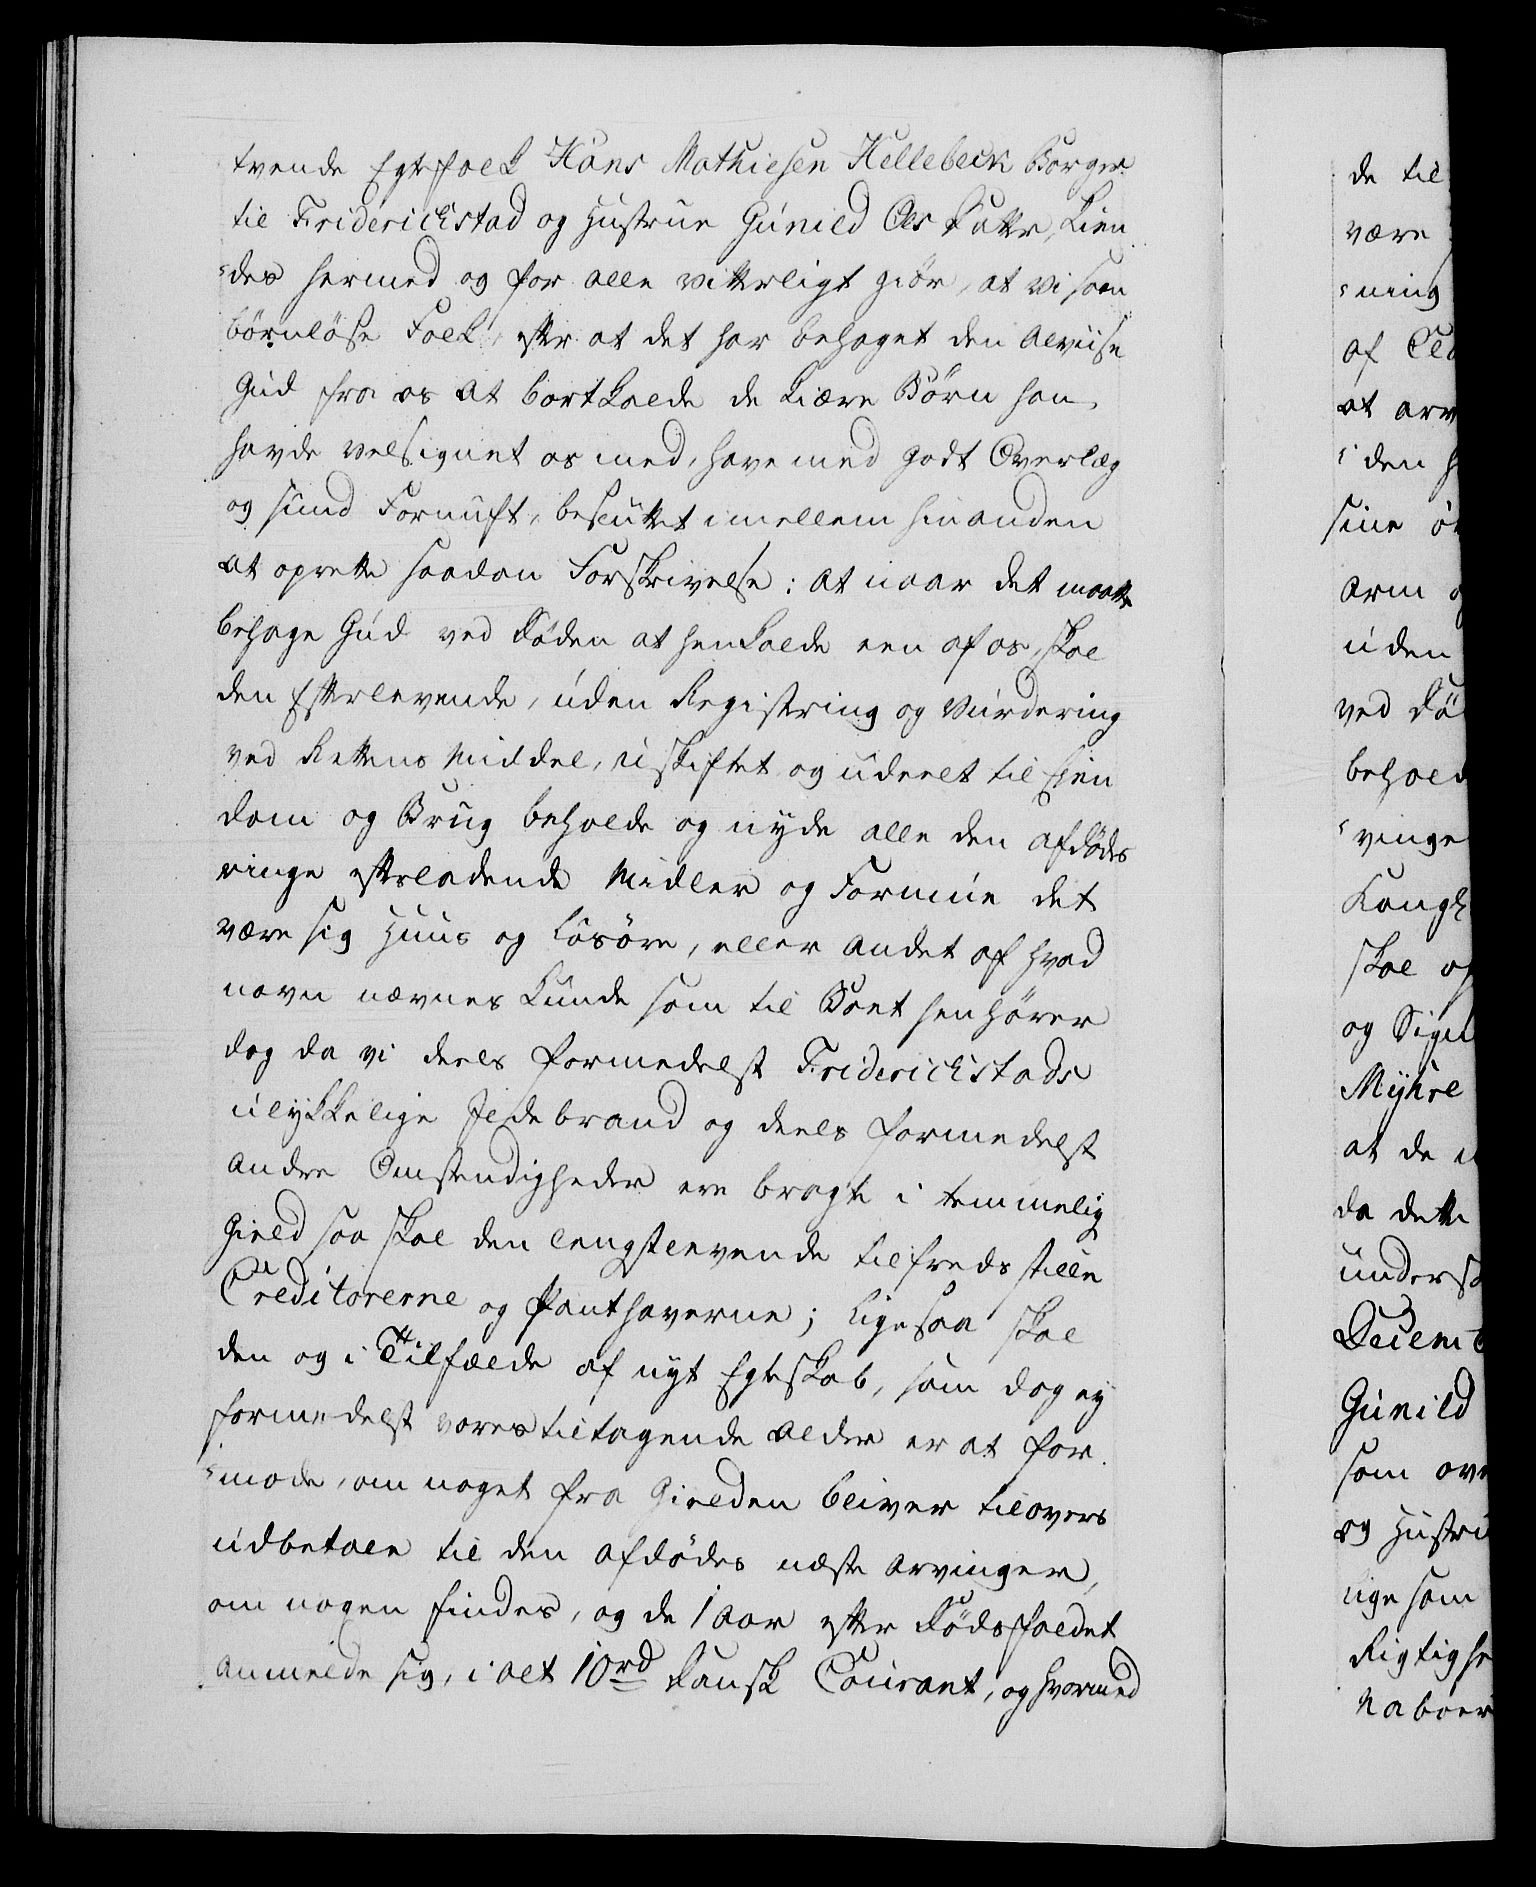 tvende Egtefolk Hans Mathiesen Hellebeck Borger
til Friderichstad og Hustrue Gunild Ols Datter, kien
"des hermed og for alle vitterligt giør, at vi som
børnløse Folk, efter at det har behaget den Alviise
Gud fra os at bortkalde de kiære Børn han
havde velsignet os med, have med godt Overlæg
og sund Fornuft, besluttet imellem hinanden
at oprette saadan Forskrivelse: at naar det maatte
behage Gud ved Døden at henkalde een af os, skal
den Efterlevende, uden Registring og Vurdering
ved Rettens Middel, uskiftet og udeelt til Eien
dom og Brug beholde og nyde alle den afdødes
ringe efterladende Midler og Formue det
være sig Huus og Løsøre, eller andet af hvad
navn nævnes kunde som til Boet henhører
dog da vi deels formedelst Friderichstads
ulykkelige Ildebrand og deels formedelst
andre Omstendigheder ere bragte i temmelig
Gield saa skal den lengstlevende tilfredsstille
Creditorerne og Panthaverne; ligesaa skal
den og i Tilfælde af nyt Egteskab, som dog ej
formedelst vores tiltagende Alder er at for
"mode, om noget fra Gielden bliver tilovers
udbetale til den afdødes næste Arvinger,
om nogen findes, og de 1 Aar efter Dødsfaldet
anmelde sig, i alt 10 rd Dansk Courant, og hvormed
de til
være
"ning
af
at arv
"den
sine
Arm
uden
ved Dø
behold
"vinge
Kongl
skal op
og Sign
Myhre
at de
da dette
unders
Decemb
Gunild
som ove
og Hustru
lige som
Rigtighe
Naboer